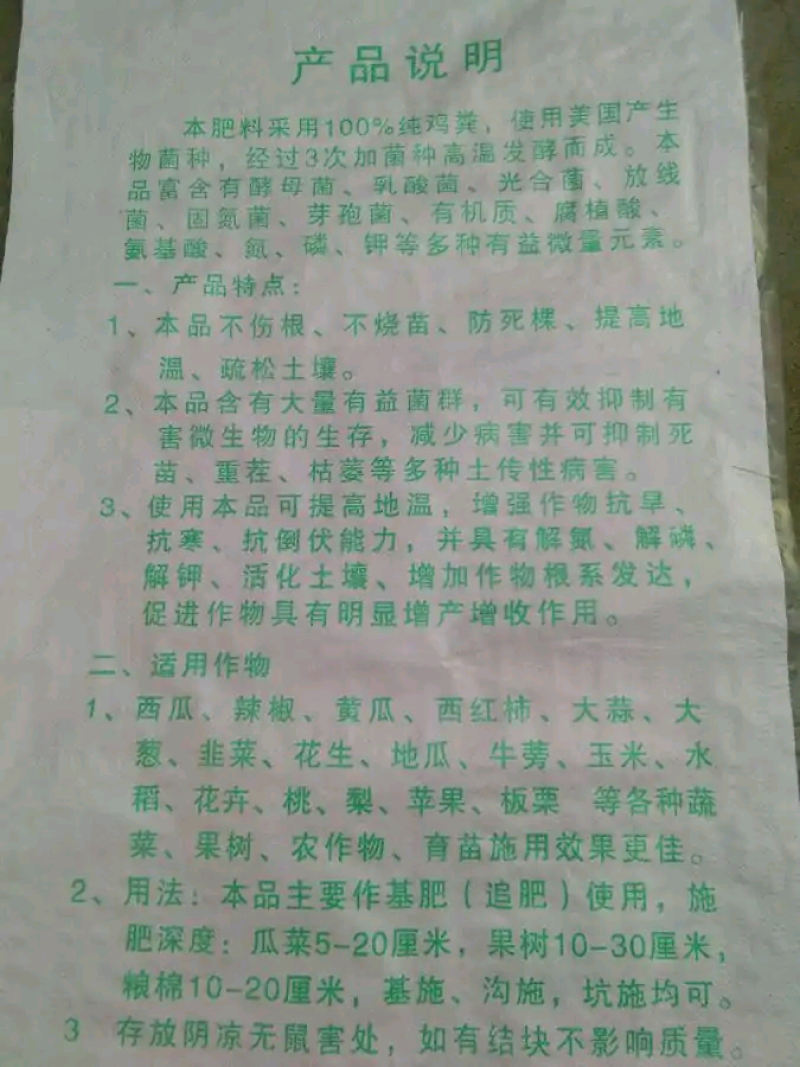 产品说明
本肥料采用100%纯鸡粪，使用美国产生
物菌种，经过3次加菌种高温发酵而成。本
品富含有酵母菌、乳酸菌、光合菌、放线
菌、固氮菌、芽孢菌、有机质、腐植酸、
氨基酸、氮、磷、钾等多种有益微量元素。
一、产品特点：
1、本品不伤根、不烧苗、防死棵、提高地
温、疏松土壤。
2、本品含有大量有益菌群，可有效抑制有
害微生物的生存，减少病害并可抑制死
苗、重茬、枯萎等多种土传性病害。
3、使用本品可提高地温，增强作物抗旱、
抗寒、抗倒伏能力，并具有解氮、解磷、
解钾、活化土壤、增加作物根系发达，
促进作物具有明显增产增收作用。
二、适用作物
1、西瓜、辣椒、黄瓜、西红柿、大蒜、大
葱、韭菜、花生、地瓜、牛蒡、玉米、水
稻、花卉、桃、梨、苹果、板栗 等各种蔬
菜、果树、农作物、育苗施用效果更佳。
2、用法：本品主要作基肥（追肥）使用，施
肥深度：瓜菜5-20厘米，果树10-30厘米，
粮棉10-20厘米，基施、沟施，坑施均可。
3 存放阴凉无鼠害处，如有结块不影响质量。